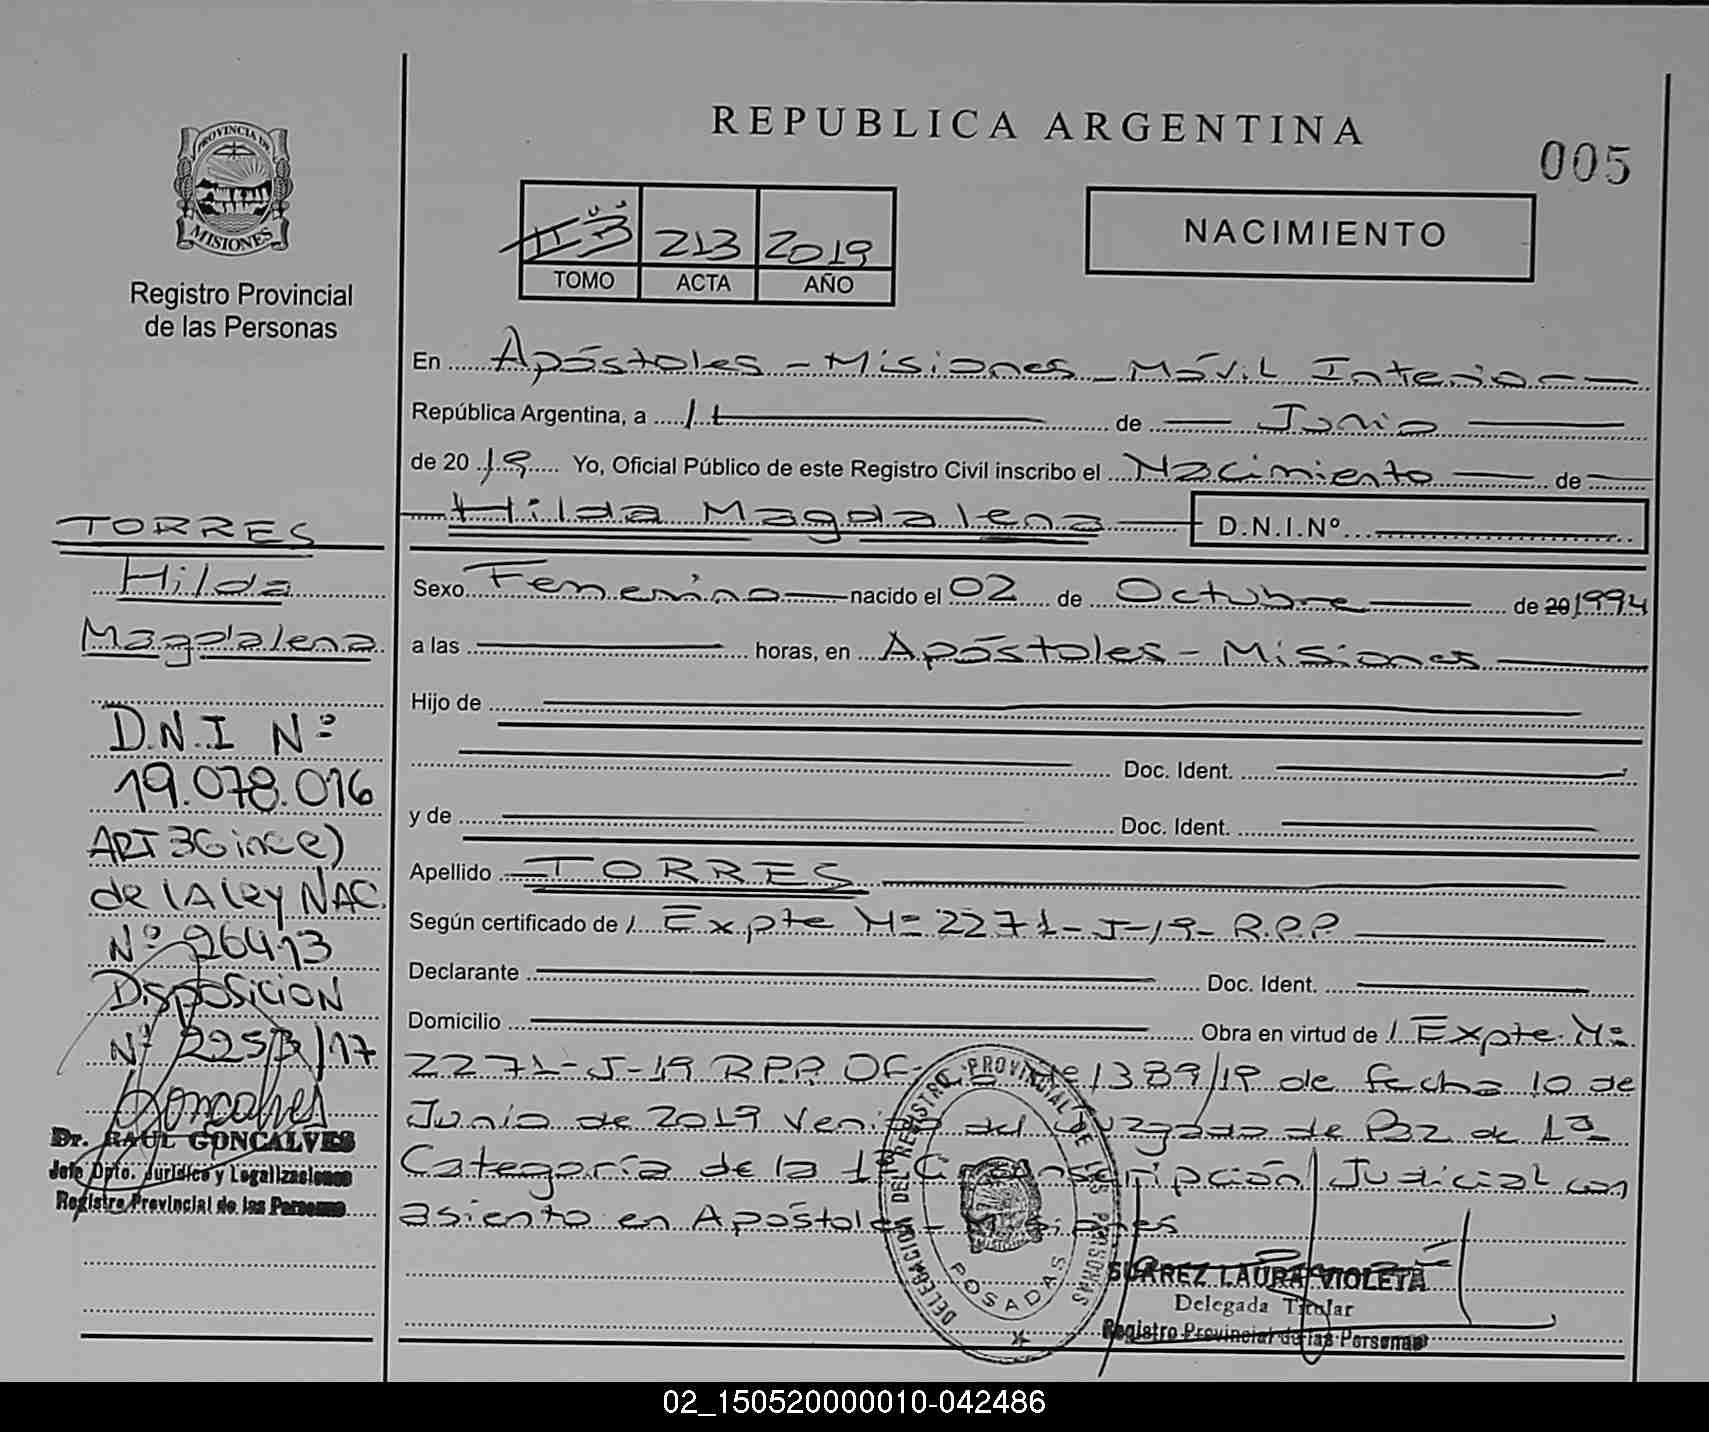 REPUBLICA ARGENTINA
005
PROVINCIA DE
MISIONES
Registro Provincial
de las Personas
213 2019
TOMO ACTA AÑO
NACIMIENTO
En Apóstoles - Misiones - Móvil Interior
República Argentina, a 1t de Junio
de 2019 Yo, Oficial Público de este Registro Civil inscribo el Nacimiento de
Hilda Magdalena D.N.I.Nº
Sexo Femenino nacido el 02 de Octubre de 20 1994
a las horas, en Apóstoles - Misiones
Hijo de
Doc. Ident.
y de Doc. Ident.
Apellido TORRES
Según certificado de / Expte Nº 2271-J-19- R.P.P
Declarante Doc. Ident.
Domicilio Obra en virtud de / Expte. Nº
2271-J-19 R.P.P. de 1389/19 de fecha 10 de
Junio de 2019 Venido del Juzgado de Paz de 1ª
Categoría de la 1ª Circunscripción Judicial con
asiento en Apóstoles - Misiones
TORRES
Hilda
Magdalena
D.N.I Nº
19.078.016
ART 3 (inc e)
de lA ley NAC.
Nº 26413
DISPOSICION
Nº 2253/17
Goncalves
Dr. RAUL GONCALVES
Jefe Dpto. Jurídico y Legalizaciones
Registro Provincial de las Personas
DELEGACION DEL REGISTRO PROVINCIAL DE LAS PERSONAS
POSADAS
SUAREZ LAURA VIOLETA
Delegada Titular
Registro Provincial de las Personas
02_150520000010-042486